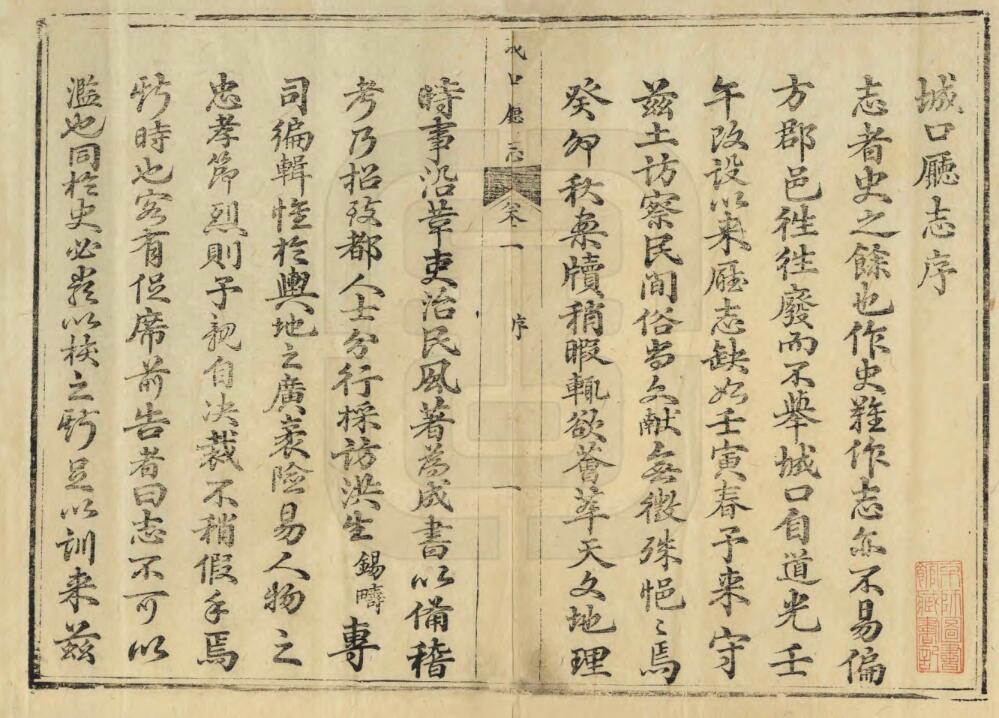 城口廳志序
志者史之餘也作史難作志亦不易偏
方郡邑徃徃廢而不舉城口自道光壬
午改設以來廳志缺如壬寅春予来守
茲土訪察民間俗尚文献無徴殊悒〻焉
癸卯秋案牘稍暇輒欲薈萃天文地理
城口廳志 卷之一 序 一
時事沿革吏治民風著為成書以備稽
考乃招致都人士分行採訪洪生錫疇專
司編輯惟於輿地之廣袤險易人物之
忠孝節烈則予親自决裁不稍假手焉
斯時也客有促席前告者曰志不可以
濫也同於史必嚴以核之斯足以訓来茲